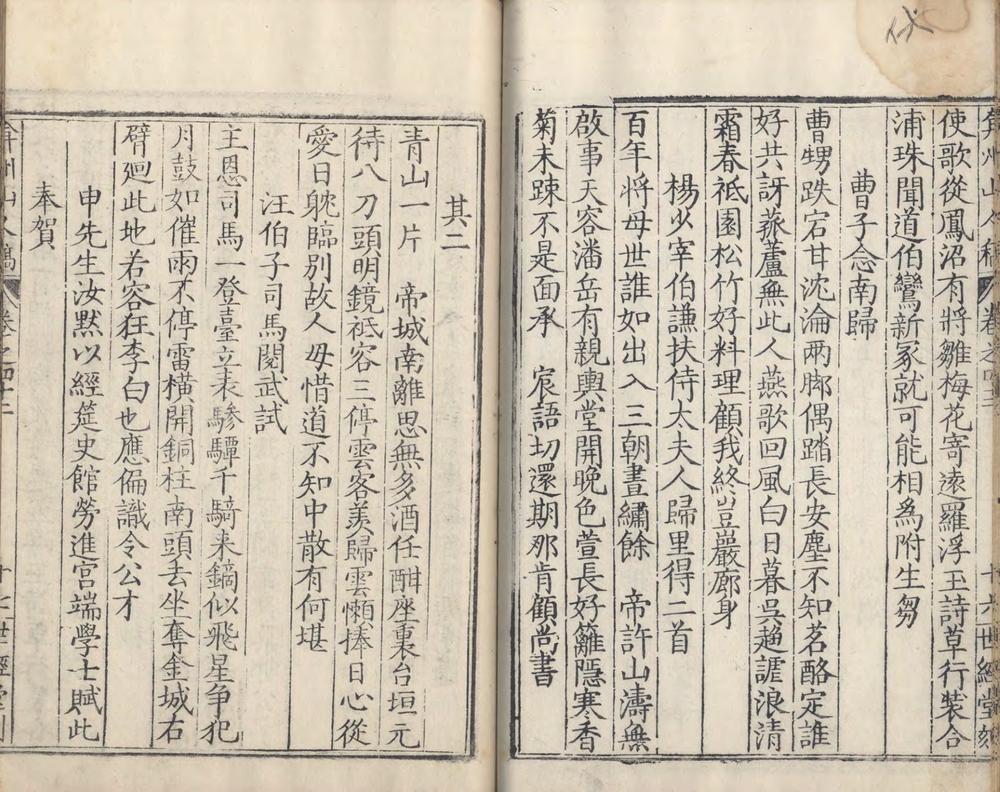 弇州山人稿 卷之四十二 十六 世經堂刻
使歌從鳳沼有將雛梅花寄遠羅浮玉詩草行裝合
浦珠聞道伯鸞新冢就可能相為附生芻
曹子念南歸
曹甥跌宕甘沈淪兩脚偶踏長安塵不知茗酪定誰
好共訝菰蘆無此人燕歌回風白日暮吳趨謔浪清
霜春祗園松竹好料理顧我終豈巖廊身
楊少宰伯謙扶侍太夫人歸里得二首
百年將母世誰如出入三朝晝繡餘 帝許山濤無
啟事天容潘岳有親輿堂開晚色萱長好籬隱寒香
菊未踈不是面承 宸語切還期那肯顧尚書
其二
青山一片 帝城南離思無多酒任酣座裏台垣元
待八刀頭明鏡祗容三停雲客羨歸雲懶捧日心從
愛日躭臨別故人毋惜道不知中散有何堪
汪伯子司馬閱武試
主恩司馬一登臺立表驂驔千騎来鏑似飛星争犯
月鼓如催雨不停雷橫開銅柱南頭去坐奪金城右
臂廻此地若容狂李白也應偏識令公才
申先生汝默以經筵史館勞進宮端學士賦此
奉賀
弇州山人稿 卷之四十二 十七 世經堂刻